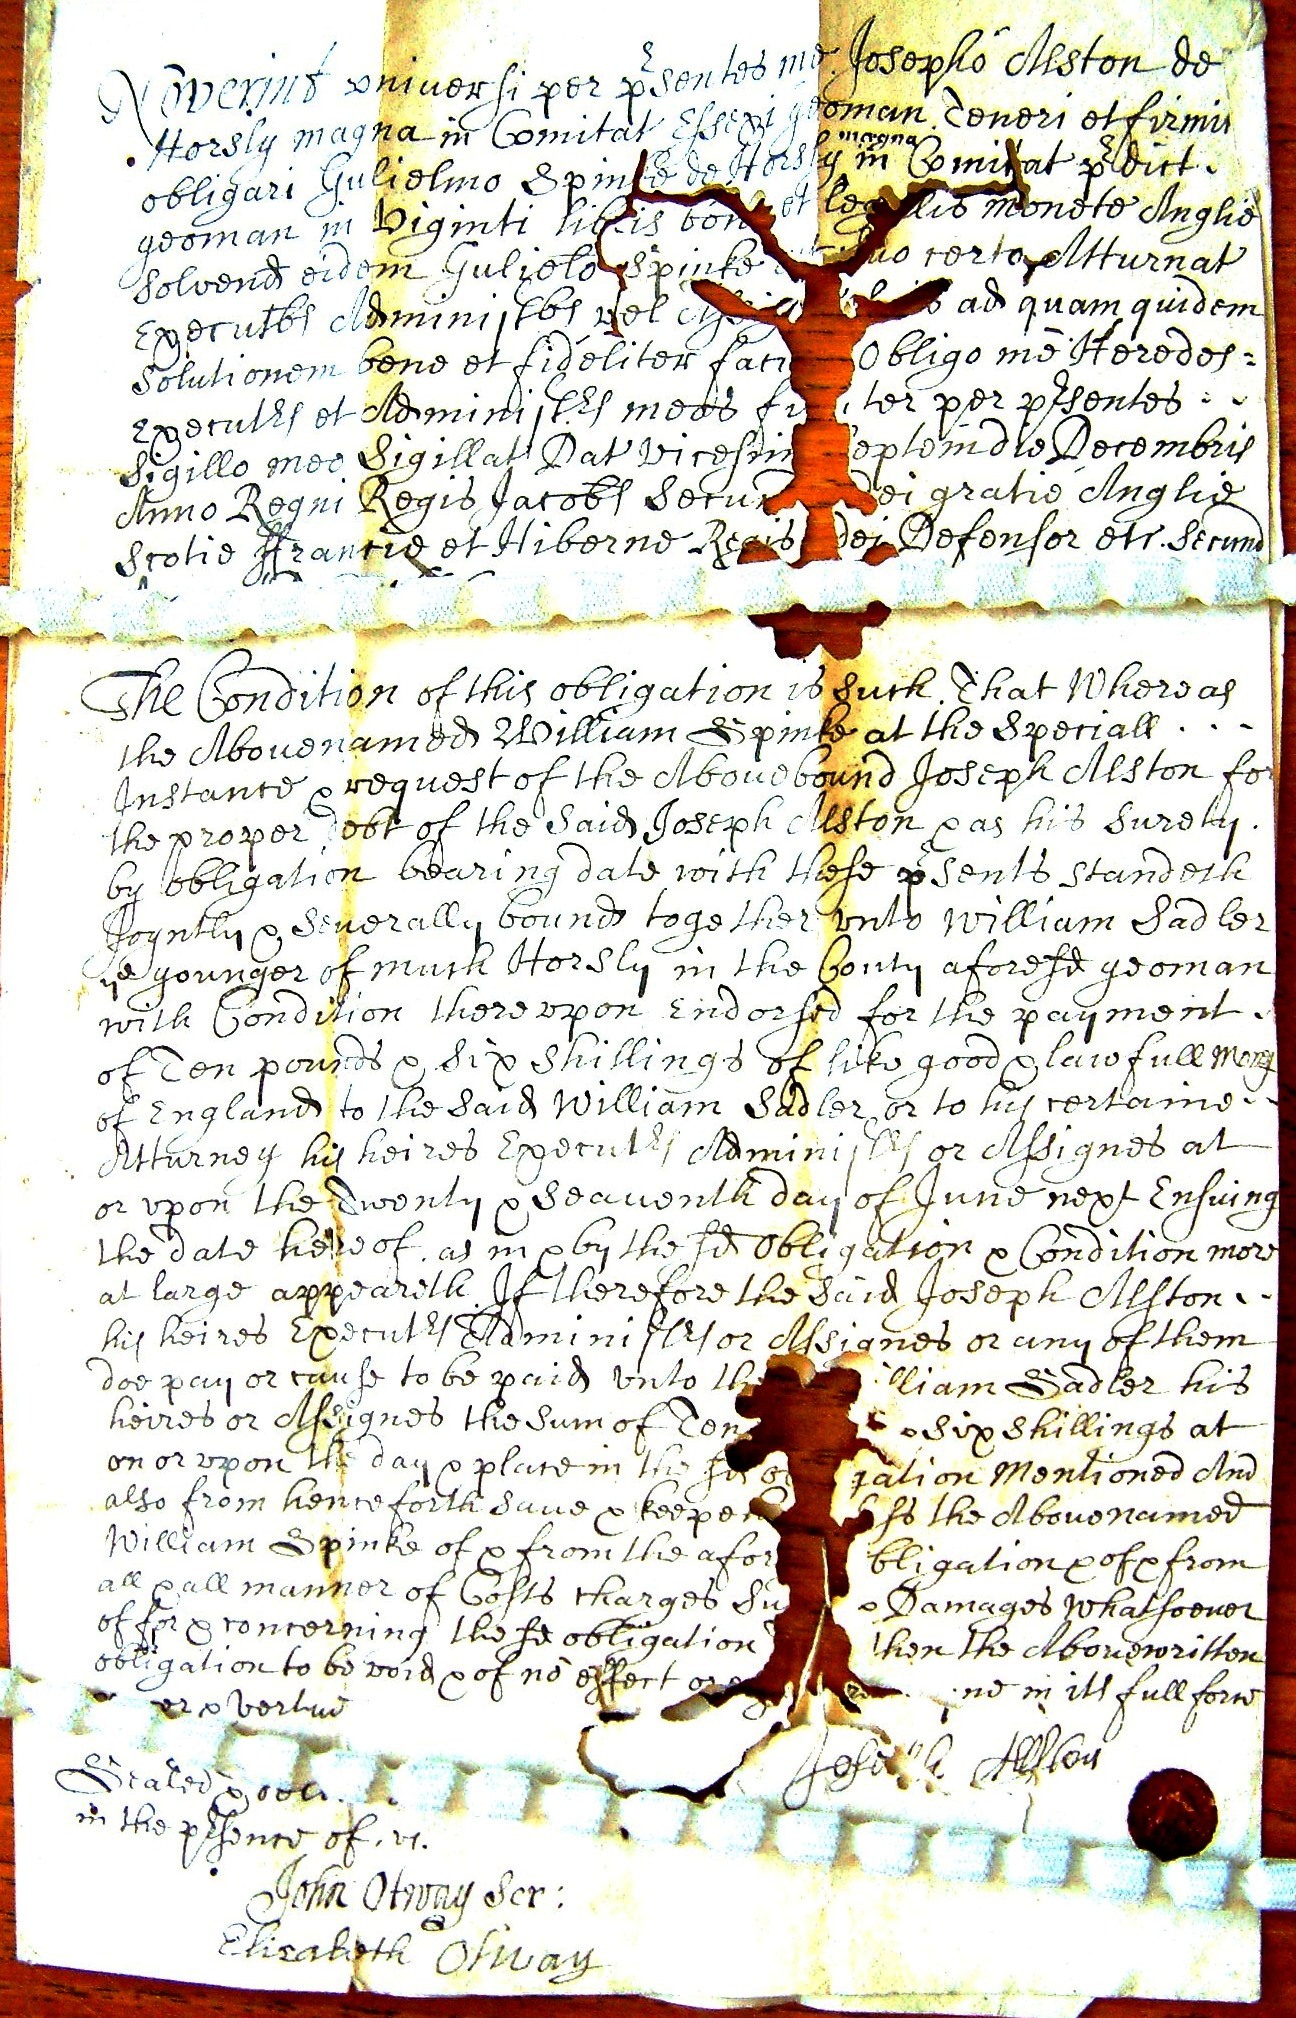 Noverint universi per prsentes me Josepho Alston de
Horsly magna in Comitat Essexi yeoman Teneri et firmit
obligari Gulielmo Spinke de Horsly magna in Comitat prdict
yeoman in Viginti libris bone et legalis monete Anglie
Solvend eidem Gulielo Spinke suo certo Atturnat
Executbs Administbs vel ad quam quidem
Solutionem bene et fideliter faci Obligo me Heredes
Executrs et Administrs meos fi ter per prsentes
Sigillo meo Sigillat Dat vicesim eptem die Decembris
Anno Regni Regis Jacobs Secun Dei gratie Anglie
Scotie ffrancie et Hiberne Regis dei Defensor etc. Secund
The Condition of this obligation is such That Whereas
the Abovenamed William Spinke at the Speciall
Instance & request of the Abovebound Joseph Alston for
the proper debt of the Said Joseph Alston & as his Surety
by obligation bearing date with these prsents standeth
Joyntly & Severally bound together vnto William Sadler
ye younger of much Horsly in the Couty aforesd yeoman
with Condition therevpon Endorsed for the payment
of Ten pounds & Six Shillings of like good & lawfull mony
of England to the Said William Sadler or to his certaine
Atturney his heires Executrs Administrs or Assignes at
or vpon the Twenty & Seaventh day of June next Ensuing
the date hereof as in & by the sd Obligation & Condition more
at large appeareth If therefore the Said Joseph Alston
his heires Executrs Administrs or Assignes or any of them
doe pay or cause to be paid vnto the illiam Sadler his
heires or Assignes the Sum of Ten & six shillings at
on or vpon the day & place in the sd ob gation Mentioned And
also from henceforth Saue & keepe ss the Abouenamed
William Spinke of & from the afor bligation & of & from
all & all manner of Costs charges Su & Damages Whatsoeuer
of for & concerning the sd obligation then the Abovewritten
obligation to be void & of no effect or e ne in its full force
er & vertue
Joseph Allston
Sealed &
in the prsence of. vs.
John Otway Scr:
Elizabeth Otway